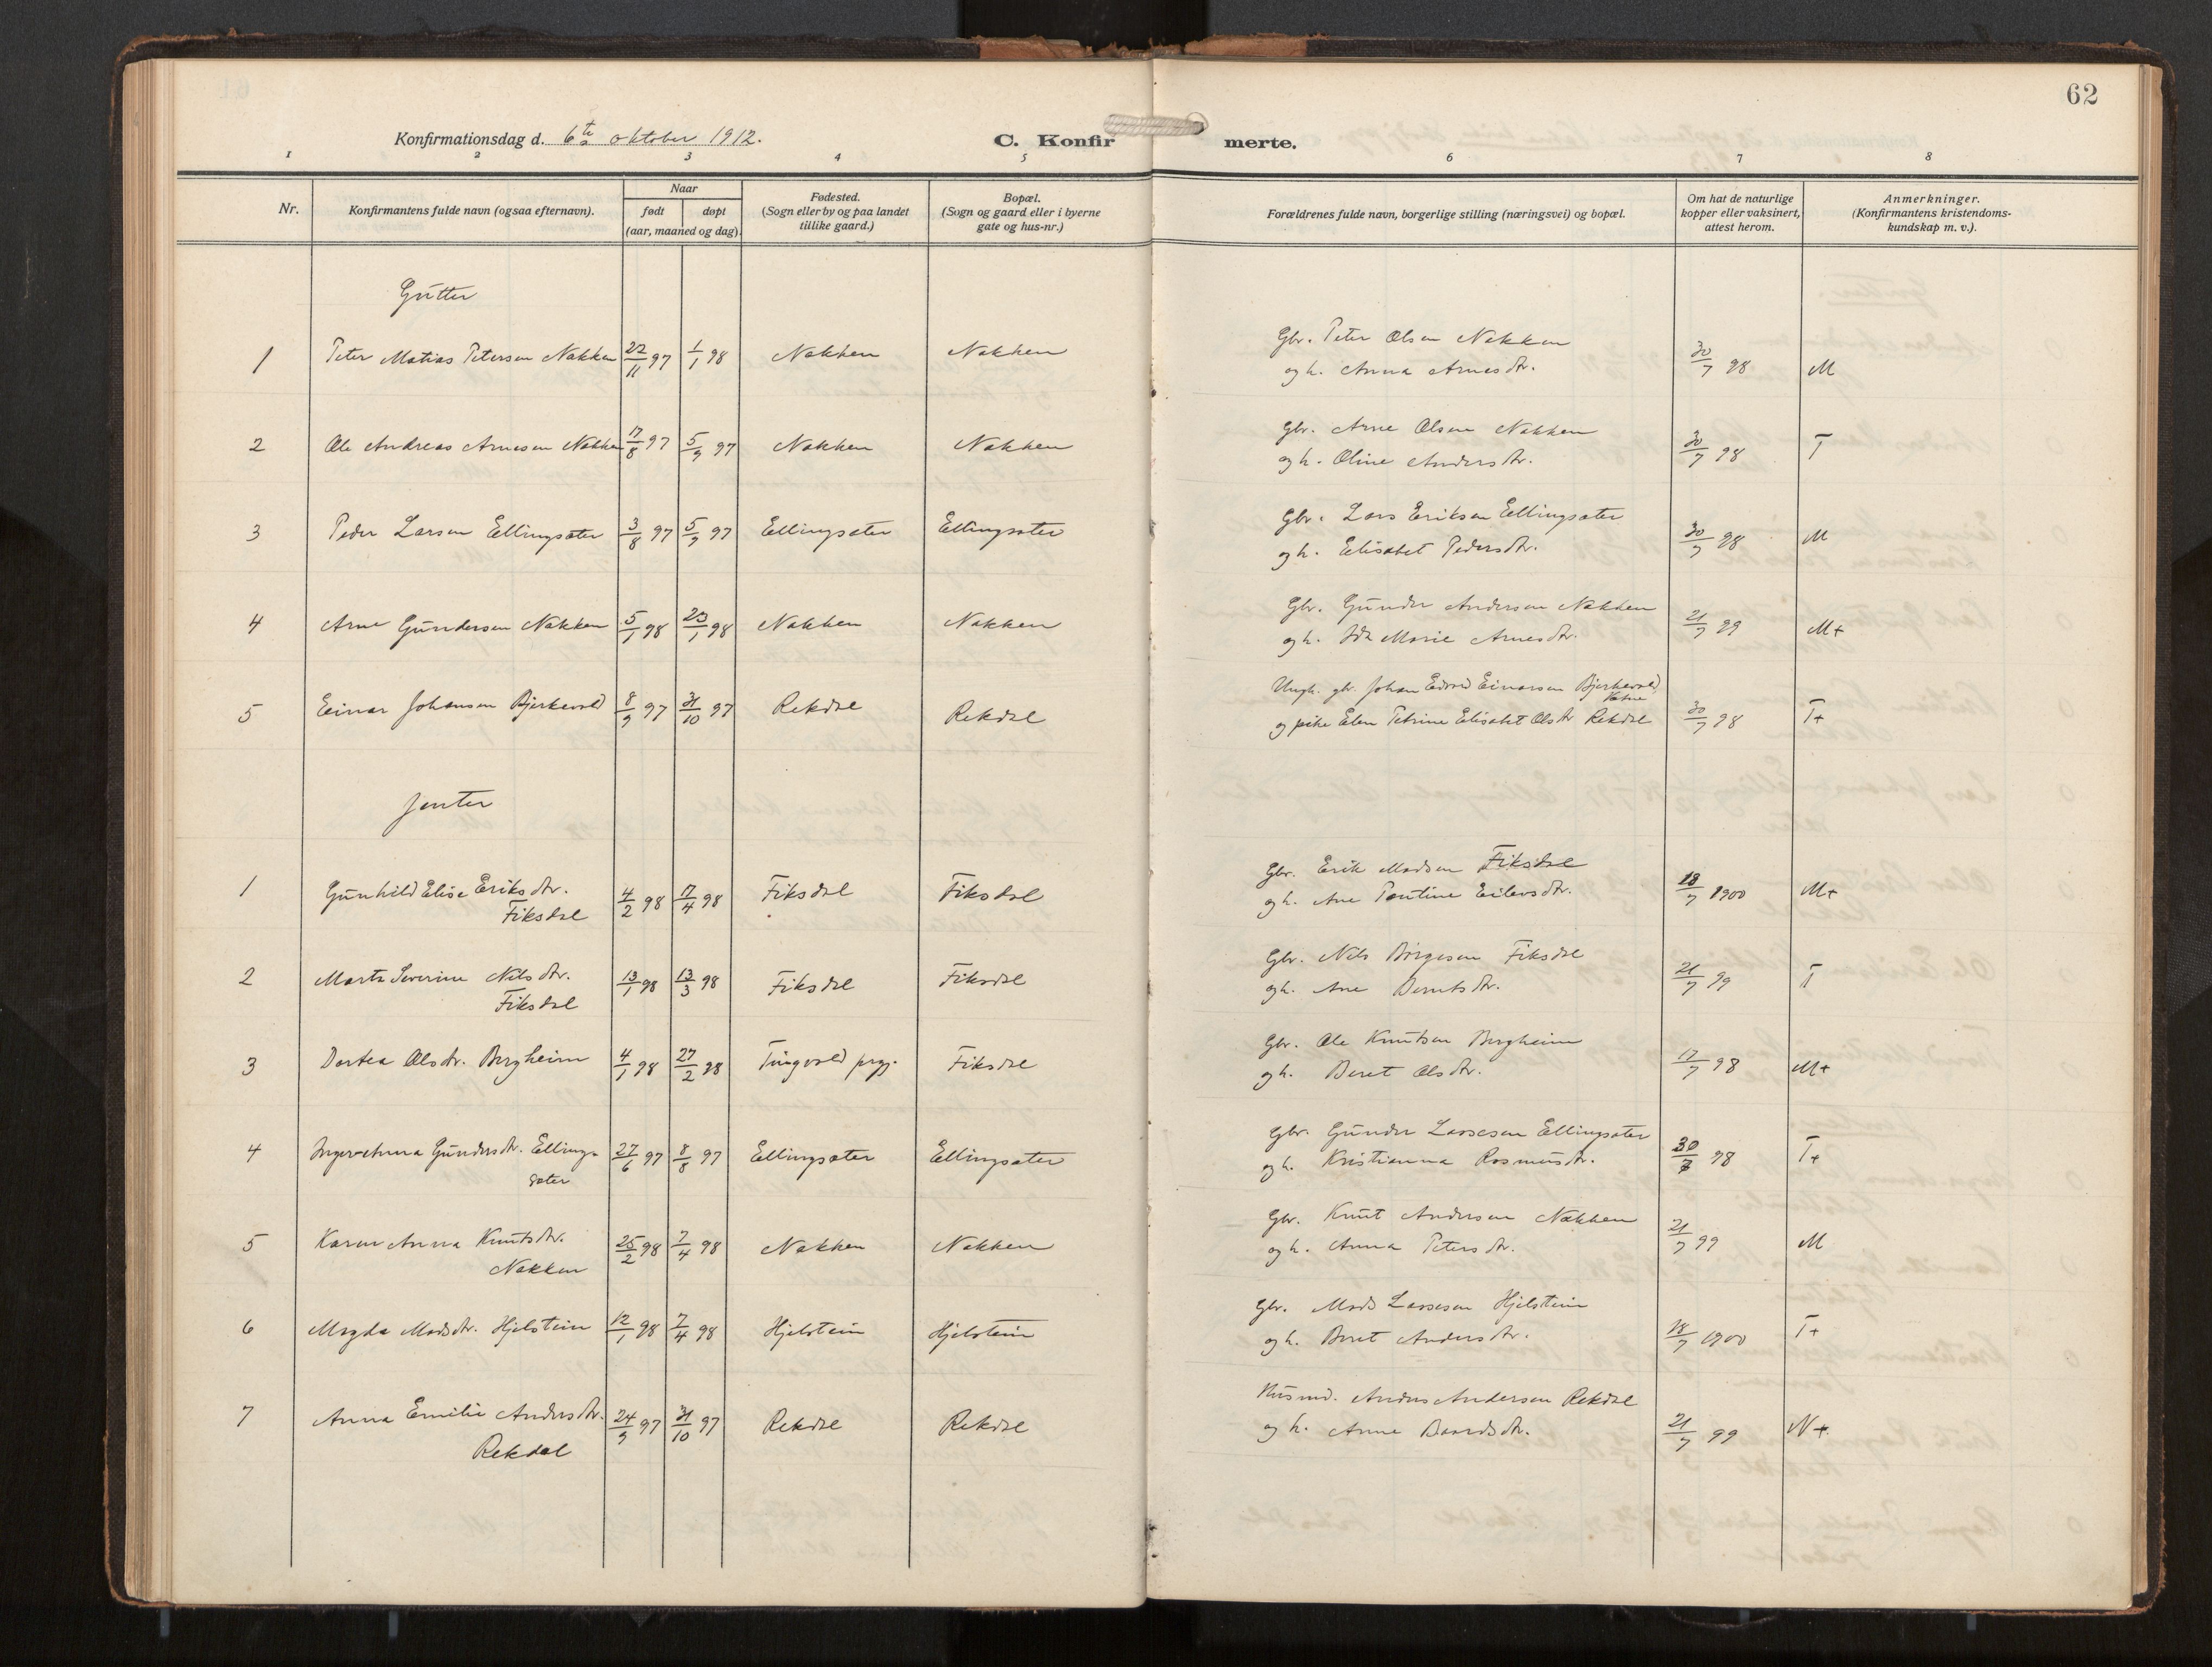 62
Konfirmationsdag d. 6te oktober 1912.
C. Konfirmerte.
1 2 3 4 5 6 7 8
Nr.
Konfirmantens fulde navn (ogsaa efternavn).
Naar
født døpt
(aar, maaned og dag).
Fødested.
(Sogn eller by og paa landet
tillike gaard.)
Bopæl.
(Sogn og gaard eller i byerne
gate og hus-nr.)
Forældrenes fulde navn, borgerlige stilling (næringsvei) og bopæl.
Om hat de naturlige
kopper eller vaksinert,
attest herom.
Anmerkninger.
(Konfirmantens kristendoms-
kundskap m. v.).
Gutter
1 Peter Matias Petersen Nakken 22/11 97 1/1 98 Nakken Nakken Gbr. Peter Olsen Nakken
og h. Anna Arnesdtr. 30/7 98 M
2 Ole Andreas Arnesen Nakken 17/8 97 5/9 97 Nakken Nakken Gbr. Arne Olsen Nakken
og h. Oline Andersdtr. 30/7 98 T
3 Peder Larsen Ellingsæter 3/8 97 5/9 97 Ellingsæter Ellingsæter Gbr. Lars Eriksen Ellingsæter
og h. Elisabet Pedersdtr. 30/7 98 M
4 Arne Gundersen Nakken 5/1 98 23/1 98 Nakken Nakken Gbr. Gunder Andersen Nakken
og h. Ida Marie Arnesdtr. 21/7 99 M+
5 Einar Johansen Bjerkevold 8/9 97 31/10 97 Rekdal Rekdal Ungk. gbr. Johan Edvard Einarsen Bjerkevold,
Vatne
og pike Elen Petrine Elisabet Olsdtr Rekdal 30/7 98 T+
Jenter
1 Gunhild Elise Eriksdtr.
Fiksdal 4/2 98 17/4 98 Fiksdal Fiksdal Gbr. Erik Madsen Fiksdal
og h. Ane Pentine Eilevsdtr. 18/7 1900 M+
2 Marta Severine Nilsdtr.
Fiksdal 13/1 98 13/3 98 Fiksdal Fiksdal Gbr. Nils Børgesen Fiksdal
og h. Ane Berntsdtr. 21/7 99 T
3 Dortea Olsdtr. Bergheim 4/1 98 27/2 98 Tingvold prgj. Fiksdal Gbr. Ole Knutsen Bergheim
og h. Beret Olsdtr. 17/7 98 M+
4 Inger-Anna Gundersdtr. Ellings-
sæter 27/6 97 8/8 97 Ellingsæter Ellingsæter Gbr. Gunder Lassesen Ellingsæter
og h. Kristianna Rasmusdtr. 30/7 98 T+
5 Karen Anna Knutsdtr.
Nakken 25/2 98 7/4 98 Nakken Nakken Gbr. Knut Andersen Nakken
og h. Anna Petersdtr. 21/7 99 M
6 Magda Madsdtr. Hjelstein 12/1 98 7/4 98 Hjelstein Hjelstein Gbr. Mads Lassesen Hjelstein
og h. Beret Andersdtr. 18/7 1900 T+
7 Anna Emilie Andersdtr.
Rekdal 24/9 97 31/10 97 Rekdal Rekdal Husmd. Anders Andersen Rekdal
og h. Anne Baardsdtr. 21/7 99 N+